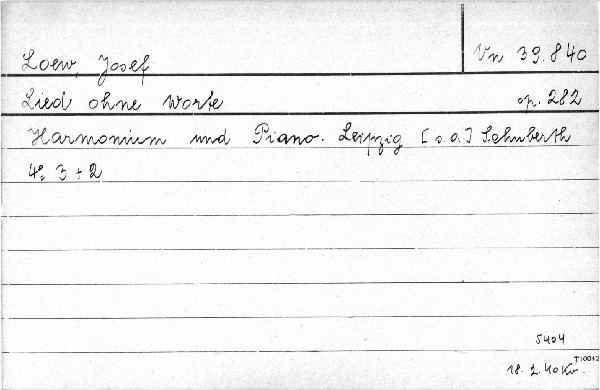 Loew, Josef Vn 39.840
Lied ohne Worte op. 282
Harmonium und Piano. Leipzig [s.a.] Schuberth
4° 3 + 2
5404
T10042
18. 2. 40 Kv.